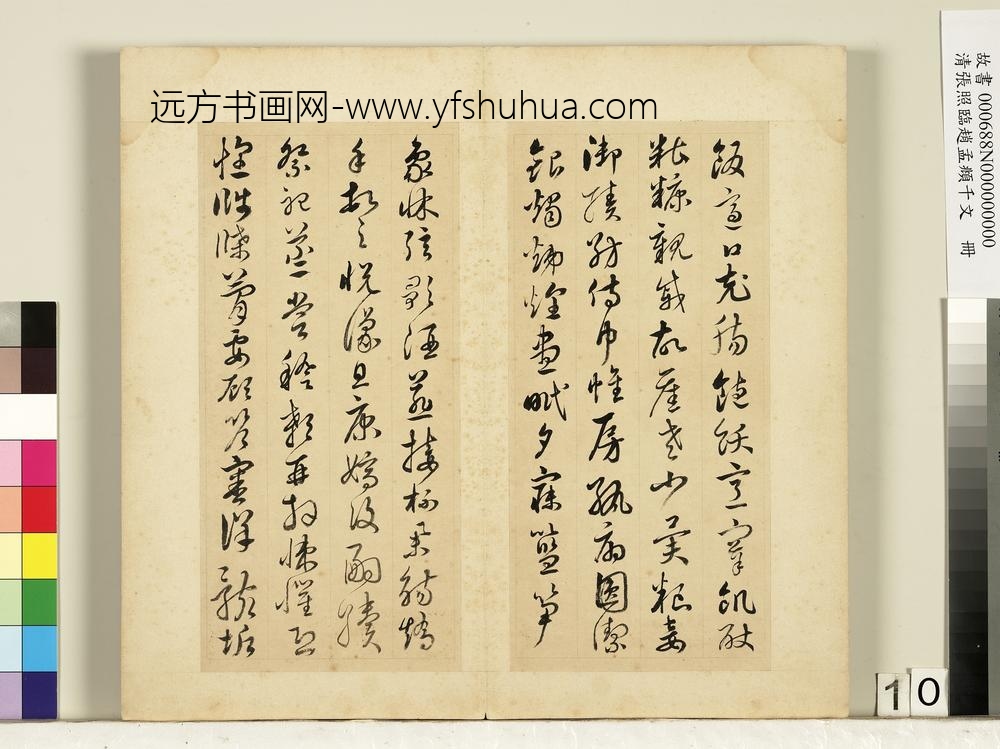 远方书画网-www.yfshuhua.com
飯適口充腸飽飫烹宰飢厭
糟糠親戚故舊老少異糧妾
御績紡侍巾帷房紈扇圓潔
銀燭煒煌晝眠夕寐藍筍
象牀弦歌酒讌接杯舉觴矯
手頓足悅豫且康嫡後嗣續
祭祀蒸嘗稽顙再拜悚懼恐
惶牋牒簡要顧答審詳骸垢
故書 000688N000000000
清張照臨趙孟頫千文 冊
10